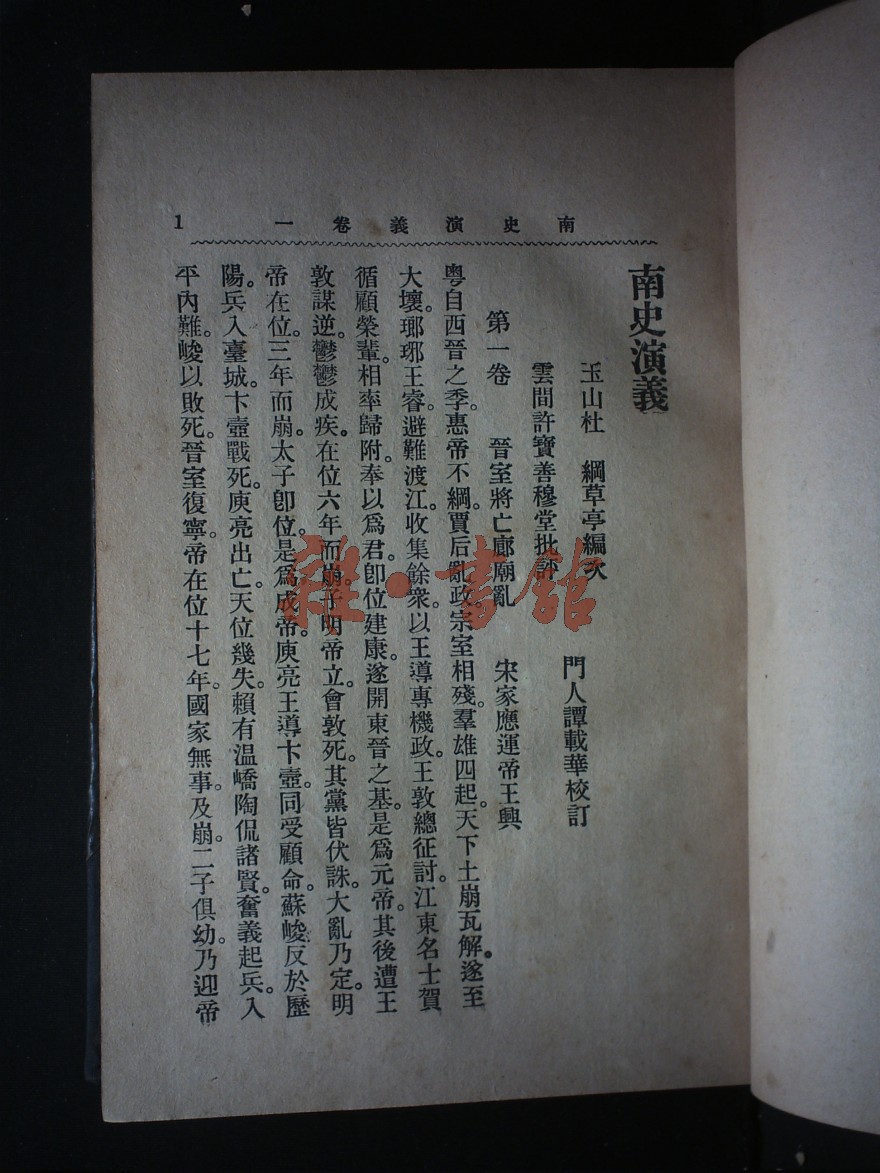 南史演義卷一 1
南史演義
玉山杜 綱草亭編次
雲間許寶善穆堂批評 門人譚載華校訂
第一卷 晉室將亡廊廟亂 宋家應運帝王興
粵自西晉之季。惠帝不綱。賈后亂政。宗室相殘。羣雄四起。天下土崩瓦解。遂至
大壞。瑯琊王睿。避難渡江。收集餘衆。以王導專機政。王敦總征討。江東名士賀
循顧榮輩。相率歸附。奉以爲君。卽位建康。遂開東晉之基。是爲元帝。其後遭王
敦謀逆。鬱鬱成疾。在位六年而崩。子明帝立。會敦死。其黨皆伏誅。大亂乃定。明
帝在位。三年而崩。太子卽位。是爲成帝。庾亮王導卞壼。同受顧命。蘇峻反於歷
陽。兵入臺城。卞壼戰死。庾亮出亡。天位幾失。賴有温嶠陶侃諸賢。奮義起兵。入
平內難。峻以敗死。晉室復寧。帝在位十七年。國家無事。及崩。二子俱幼。乃迎帝
雜·書館